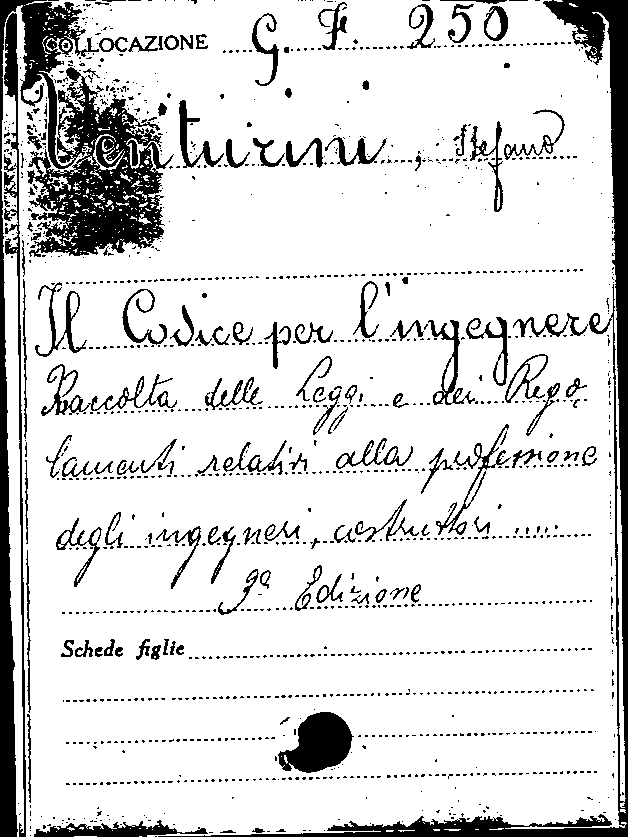 COLLOCAZIONE G. F. 250
Venturini, Stefano
Il Codice per l'ingegnere
Raccolta delle Leggi e dei Rego-
lamenti relativi alla professione
degli ingegneri, costruttori .....
3ª Edizione
Schede figlie